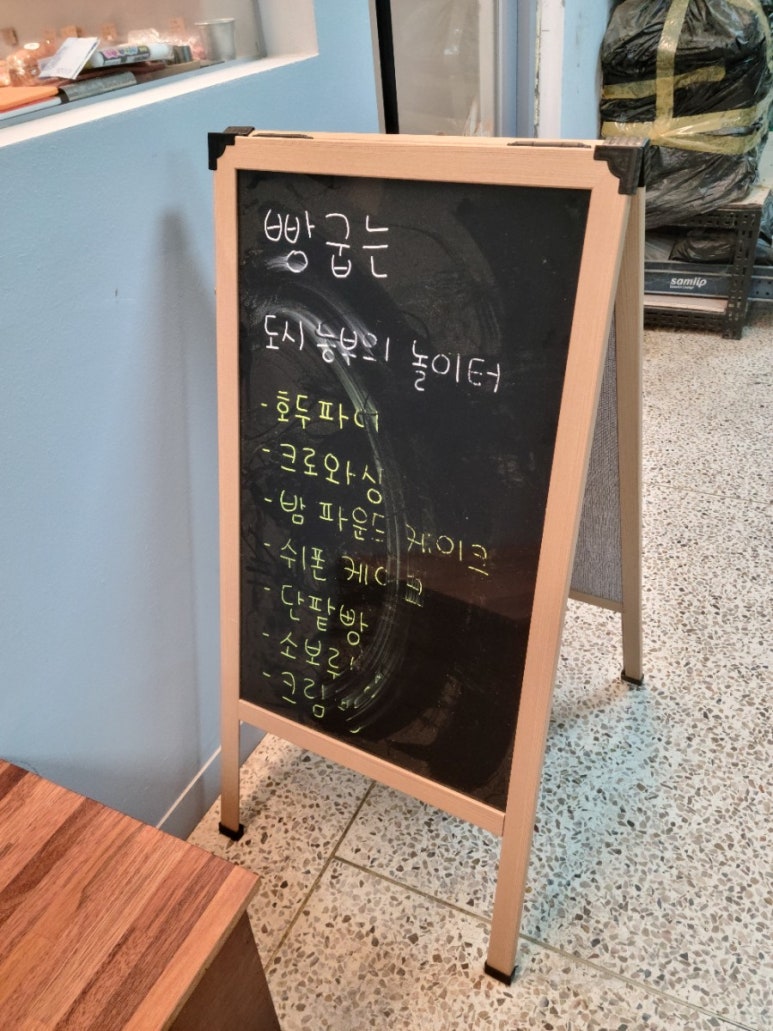 빵 굽는
도시 농부의 놀이터
- 호두파이
- 크로와상
- 밤 파운드 케이크
- 쉬폰 케이크
- 단팥빵
- 소보루
- 크림
samlip